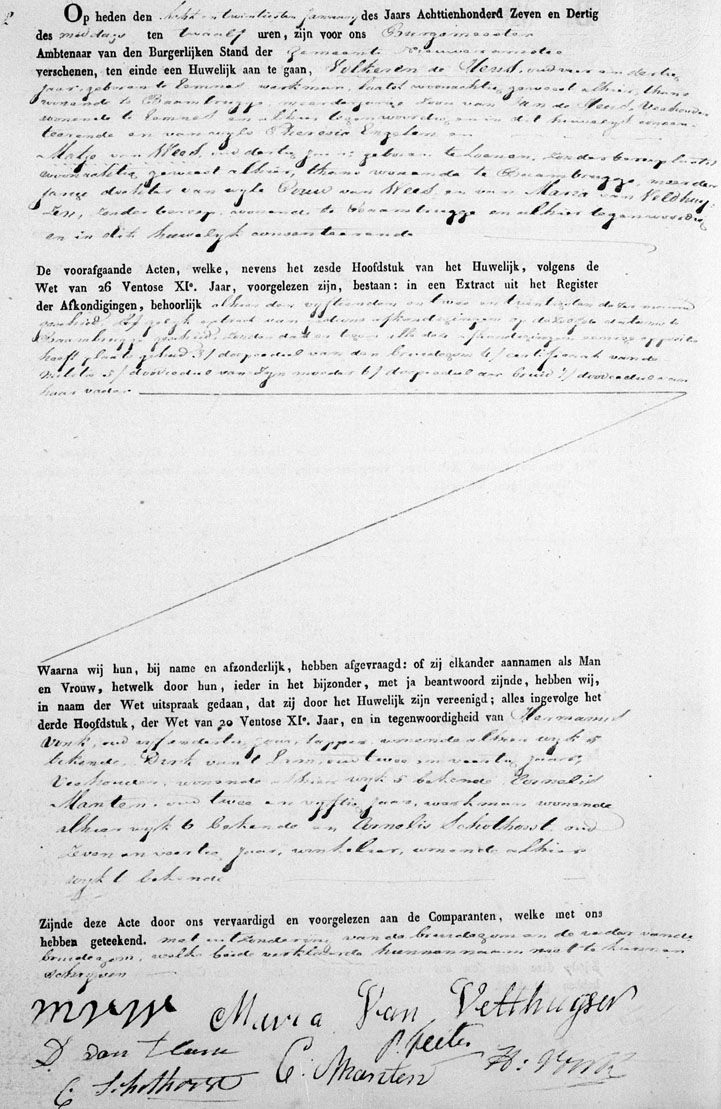 Op heden den acht en twintigsten January des Jaars Achttienhonderd Zeven en Dertig
des middags ten twaalf uren, zijn voor ons Burgemeester
Ambtenaar van den Burgerlijken Stand der gemeente
verschenen, ten einde een Huwelijk aan te gaan, de Heus, oud
jaar, geboren te Eemnes werkman, laatst woonachtig geweest alhier, thans
wonende te Baambrugge, meerderjarige zoon van Jan de Heus, Veehouder
wonende te Eemnes en alhier tegenwoordig en in dit huwelyk consen-
teerende en van wyle Theresia Engelen en
van Wees, oud dertig jaar geboren te Loenen, zonder beroep laatst
woonachtig geweest alhier, thans wonende te Baambrugge, meerder
jarige dochter van wyle van Wees, en van Maria van Veldhuy-
zen, zonder beroep, wonende te Baambrugge en alhier tegenwoordig
en in dit huwelyk consenteerende
De voorafgaande Acten, welke, nevens het zesde Hoofdstuk van het Huwelijk, volgens de
Wet van 26 Ventose XIe. Jaar, voorgelezen zijn, bestaan: in een Extract uit het Register
der Afkondigingen, behoorlijk alhier den vyftienden en twee en twintigsten dezer maand
geschied. 2/ gelyk extract van gedane afkondigingen op dezelfde datums te
Baambrugge geschied, zonder dat er tegen alle deze afkondigingen eenige oppositie
heeft plaats gehad 3/ doopcedul van den bruidegom 4/ certificaat van de
militie 5/ doodcedul van zyn moeder 6/ doopcedul der bruid 7/ doodcedul van
haar vader
Waarna wij hun, bij name en afzonderlijk, hebben afgevraagd: of zij elkander aannamen als Man
en Vrouw, hetwelk door hun, ieder in het bijzonder, met ja beantwoord zijnde, hebben wij,
in naam der Wet uitspraak gedaan, dat zij door het Huwelijk zijn vereenigd; alles ingevolge het
derde Hoofdstuk, der Wet van 20 Ventose XIe. Jaar, en in tegenwoordigheid van Hermanus
Vonk, oud jaar, tapper, wonende alhier wyk 5
bekende Dirk van oud twee en veertig jaar,
Veehouder, wonende alhier wyk 5 bekende Cornelis
Manten oud twee en vyftig jaar, werkman wonende
alhier wyk 6 bekende en Cornelis Schothorst oud
zeven en veertig jaar, winkelier, wonende alhier
wyk 1 bekende
Zijnde deze Acte door ons vervaardigd en voorgelezen aan de Comparanten, welke met ons
hebben geteekend. met uitzondering van de bruidegom en de vader van de
bruidegom, welke beide verklaarde hunnen naam niet te kunnen
schryven
Maria Van Velthuysen
D. van
C. Schothorst C. Manten H: Vonk